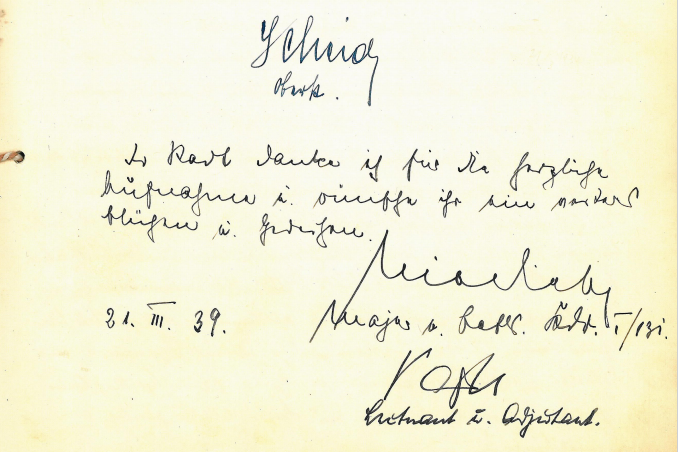 Oberst.
Der Stadt danke ich für die herzliche
Aufnahme u. wünsche ihr ein weiteres
Blühen u. Gedeihen.
21. III. 39.
Major u. Batls. Kdr. I/131.
Leutnant u. Adjutant.